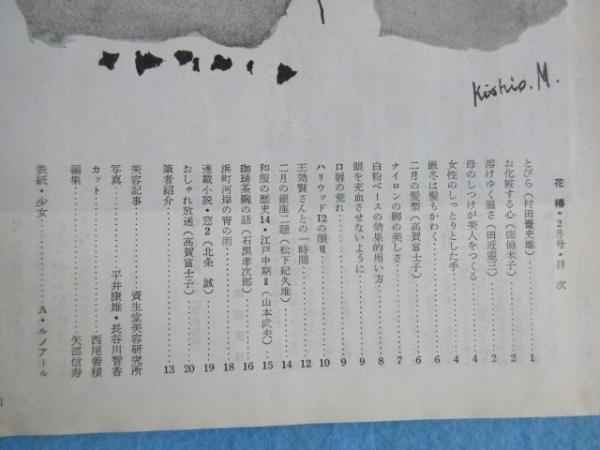 Kishio.M.
花椿・2月号・目次
とびら（村田喜史雄）……1
お化粧する心（佐伯米子）……2
溶けゆく温さ（田近憲三）……2
母のしつけが美人をつくる……4
女性のしっとりとした手……4
厳冬は髪もかわく……6
二月の髪型（高賀富士子）……6
ナイロンの脚の美しさ……7
白粉ベースの効果的用い方……8
眼を充血させないように……9
口唇の荒れ……9
ハリウッド12の顔Ⅵ……10
王効賢さんとの一時間……12
二月の銀座二題（松下紀久雄）……14
和服の歴史14・江戸中期Ⅱ（山本武夫）……15
珈琲茶碗の話（石黒孝次郎）……16
浜町河岸の宵の雨……18
連載小説・窓2（北条 誠）……19
おしゃれ放送（高賀富士子）……20
筆者紹介……13
美容記事……資生堂美容研究所
写真……平井康雄・長谷川智香
カット……西尾善積
編集……矢部信寿
表紙・少女……A・ルノアール